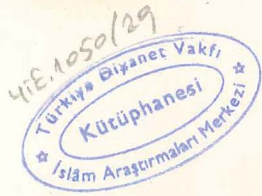 4İE.1050/29
Türkiye Diyanet Vakfı
Kütüphanesi
İslâm Araştırmaları Merkezi